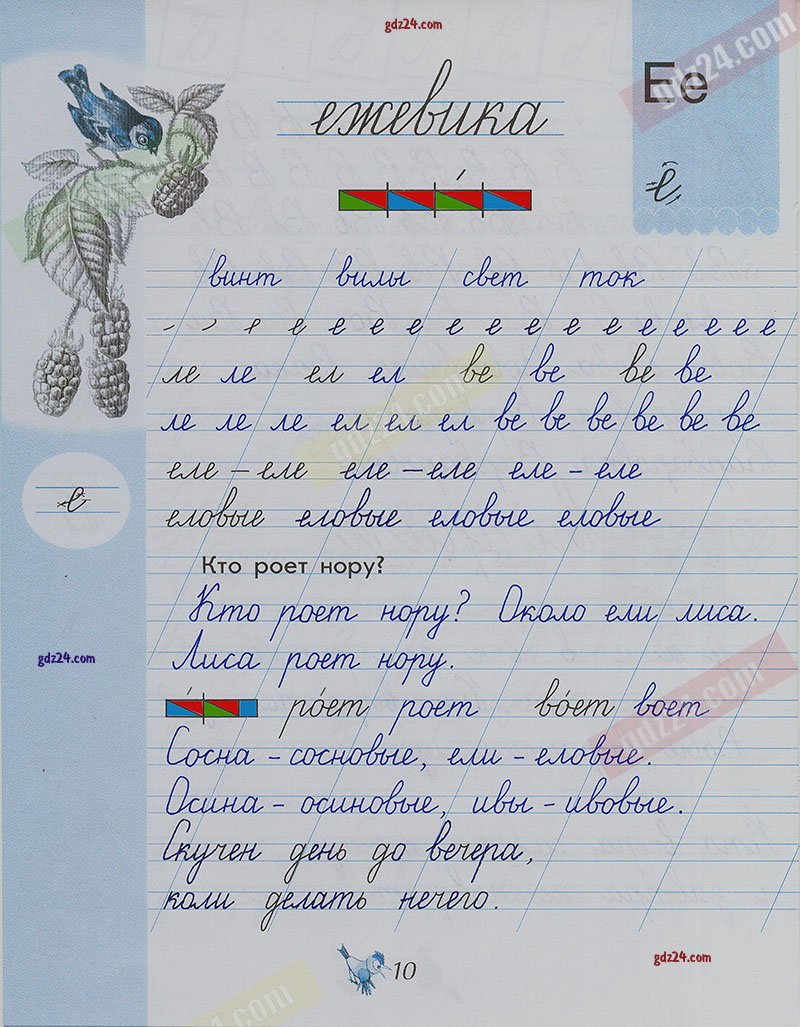 gdz24.com
gdz24.com
Ее
ежевика
е
винт вилы свет ток
е е е е е е е е е е е е е
ле ле ел ел ве ве ве ве
ле ле ле ел ел ел ве ве ве ве ве ве
gdz24.com
еле – еле еле – еле еле – еле
е
еловые еловые еловые еловые
Кто роет нору?
Кто роет нору? Около ели лиса.
Лиса роет нору.
gdz24.com
ро́ет роет во́ет воет
gdz24.com
Сосна – сосновые, ели – еловые.
Осина – осиновые, ивы – ивовые.
Скучен день до вечера,
коли делать нечего.
gdz24.com
10